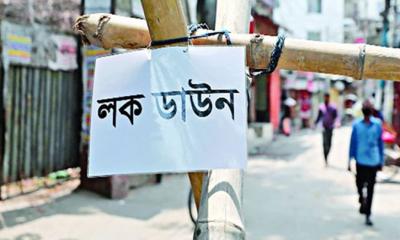 লক ডাউন